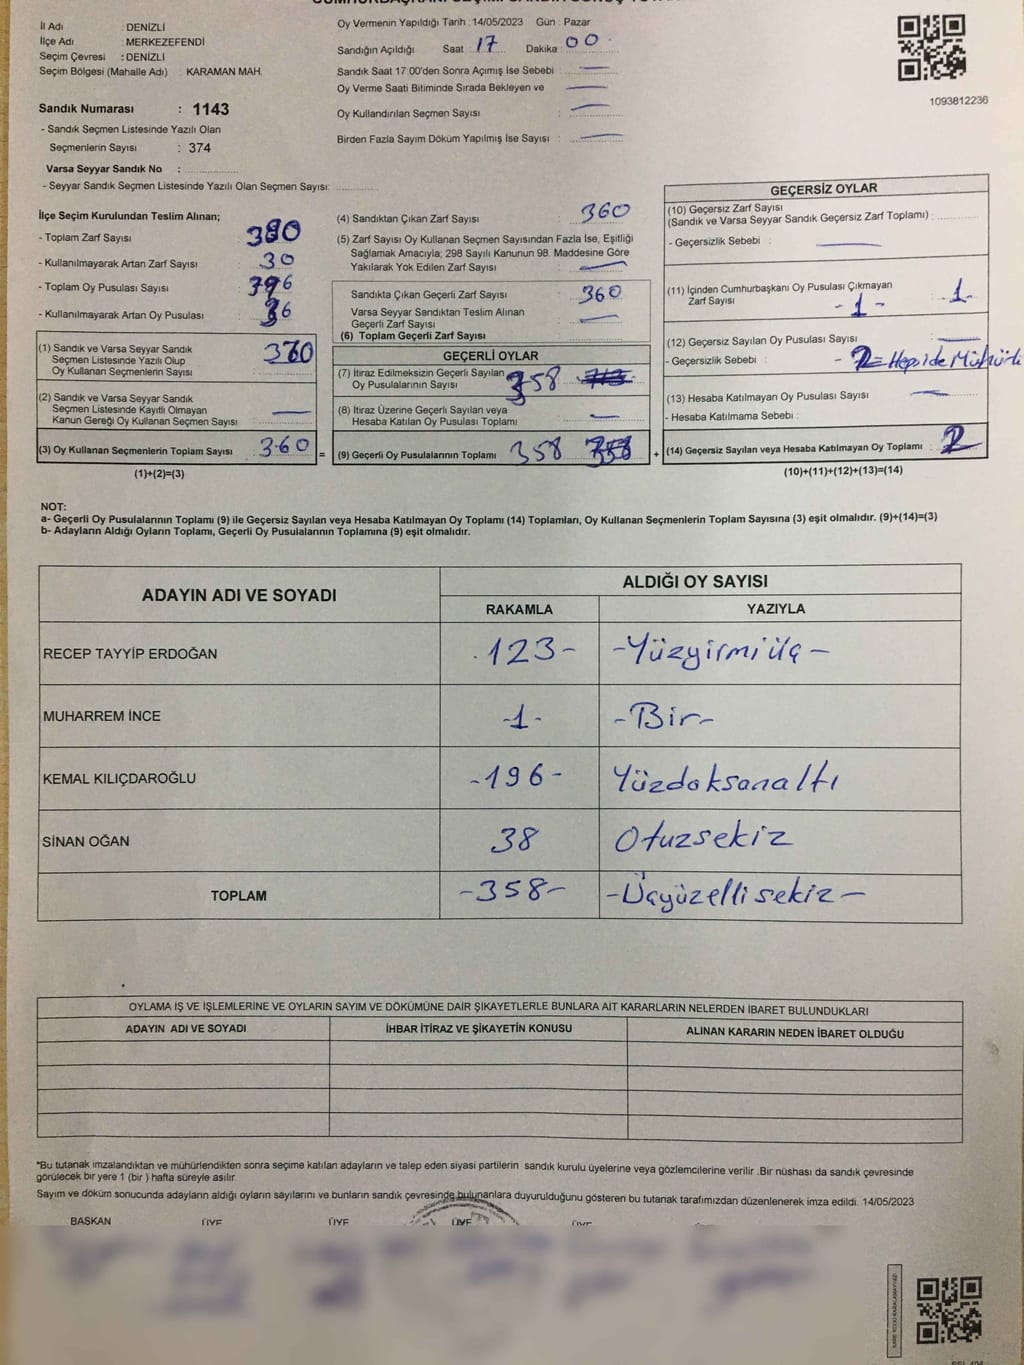 İl Adı : DENİZLİ
İlçe Adı : MERKEZEFENDİ
Seçim Çevresi : DENİZLİ
Seçim Bölgesi (Mahalle Adı) : KARAMAN MAH.
Sandık Numarası : 1143
- Sandık Seçmen Listesinde Yazılı Olan
Seçmenlerin Sayısı : 374
Varsa Seyyar Sandık No :
- Seyyar Sandık Seçmen Listesinde Yazılı Olan Seçmen Sayısı:
Oy Vermenin Yapıldığı Tarih : 14/05/2023 Gün : Pazar
Sandığın Açıldığı Saat 17 Dakika 00
Sandık Saat 17:00'den Sonra Açımış İse Sebebi :
Oy Verme Saati Bitiminde Sırada Bekleyen ve
Oy Kullandırılan Seçmen Sayısı :
Birden Fazla Sayım Döküm Yapılmış İse Sayısı :
1093812236
İlçe Seçim Kurulundan Teslim Alınan;
- Toplam Zarf Sayısı : 390
- Kullanılmayarak Artan Zarf Sayısı : 30
- Toplam Oy Pusulası Sayısı : 396
- Kullanılmayarak Artan Oy Pusulası : 36
(1) Sandık ve Varsa Seyyar Sandık
Seçmen Listesinde Yazılı Olup
Oy Kullanan Seçmenlerin Sayısı : 360
(2) Sandık ve Varsa Seyyar Sandık
Seçmen Listesinde Kayıtlı Olmayan
Kanun Gereği Oy Kullanan Seçmen Sayısı :
(3) Oy Kullanan Seçmenlerin Toplam Sayısı : 360 =
(1)+(2)=(3)
(4) Sandıktan Çıkan Zarf Sayısı : 360
(5) Zarf Sayısı Oy Kullanan Seçmen Sayısından Fazla İse, Eşitliği
Sağlamak Amacıyla; 298 Sayılı Kanunun 98. Maddesine Göre
Yakılarak Yok Edilen Zarf Sayısı :
Sandıkta Çıkan Geçerli Zarf Sayısı : 360
Varsa Seyyar Sandıktan Teslim Alınan
Geçerli Zarf Sayısı :
(6) Toplam Geçerli Zarf Sayısı
GEÇERLİ OYLAR
(7) İtiraz Edilmeksizin Geçerli Sayılan
Oy Pusulalarının Sayısı 358
(8) İtiraz Üzerine Geçerli Sayılan veya
Hesaba Katılan Oy Pusulası Toplamı :
(9) Geçerli Oy Pusulalarının Toplamı 358 +
GEÇERSİZ OYLAR
(10) Geçersiz Zarf Sayısı
(Sandık ve Varsa Seyyar Sandık Geçersiz Zarf Toplamı) :
- Geçersizlik Sebebi :
(11) İçinden Cumhurbaşkanı Oy Pusulası Çıkmayan
Zarf Sayısı -1- 1
(12) Geçersiz Sayılan Oy Pusulası Sayısı :
- Geçersizlik Sebebi : - 2 = Hepside Mühürlü
(13) Hesaba Katılmayan Oy Pusulası Sayısı :
- Hesaba Katılmama Sebebi :
(14) Geçersiz Sayılan veya Hesaba Katılmayan Oy Toplamı : 2
(10)+(11)+(12)+(13)=(14)
NOT:
a- Geçerli Oy Pusulalarının Toplamı (9) ile Geçersiz Sayılan veya Hesaba Katılmayan Oy Toplamı (14) Toplamları, Oy Kullanan Seçmenlerin Toplam Sayısına (3) eşit olmalıdır. (9)+(14)=(3)
b- Adayların Aldığı Oyların Toplamı, Geçerli Oy Pusulalarının Toplamına (9) eşit olmalıdır.
ADAYIN ADI VE SOYADI ALDIĞI OY SAYISI
RAKAMLA YAZIYLA
RECEP TAYYİP ERDOĞAN 123- -Yüzyirmiüç-
MUHARREM İNCE -1- -Bir-
KEMAL KILIÇDAROĞLU -196- Yüzdoksanaltı
SİNAN OĞAN 38 Otuzsekiz
TOPLAM -358- -Üçyüzellisekiz-
OYLAMA İŞ VE İŞLEMLERİNE VE OYLARIN SAYIM VE DÖKÜMÜNE DAİR ŞİKAYETLERLE BUNLARA AİT KARARLARIN NELERDEN İBARET BULUNDUKLARI
ADAYIN ADI VE SOYADI İHBAR İTİRAZ VE ŞİKAYETİN KONUSU ALINAN KARARIN NEDEN İBARET OLDUĞU
*Bu tutanak imzalandıktan ve mühürlendikten sonra seçime katılan adayların ve talep eden siyasi partilerin sandık kurulu üyelerine veya gözlemcilerine verilir .Bir nüshası da sandık çevresinde
görülecek bir yere 1 (bir ) hafta süreyle asılır.
Sayım ve döküm sonucunda adayların aldığı oyların sayılarını ve bunların sandık çevresinde bulunanlara duyurulduğunu gösteren bu tutanak tarafımızdan düzenlenerek imza edildi. 14/05/2023
BAŞKAN ÜYE ÜYE ÜYE ÜYE